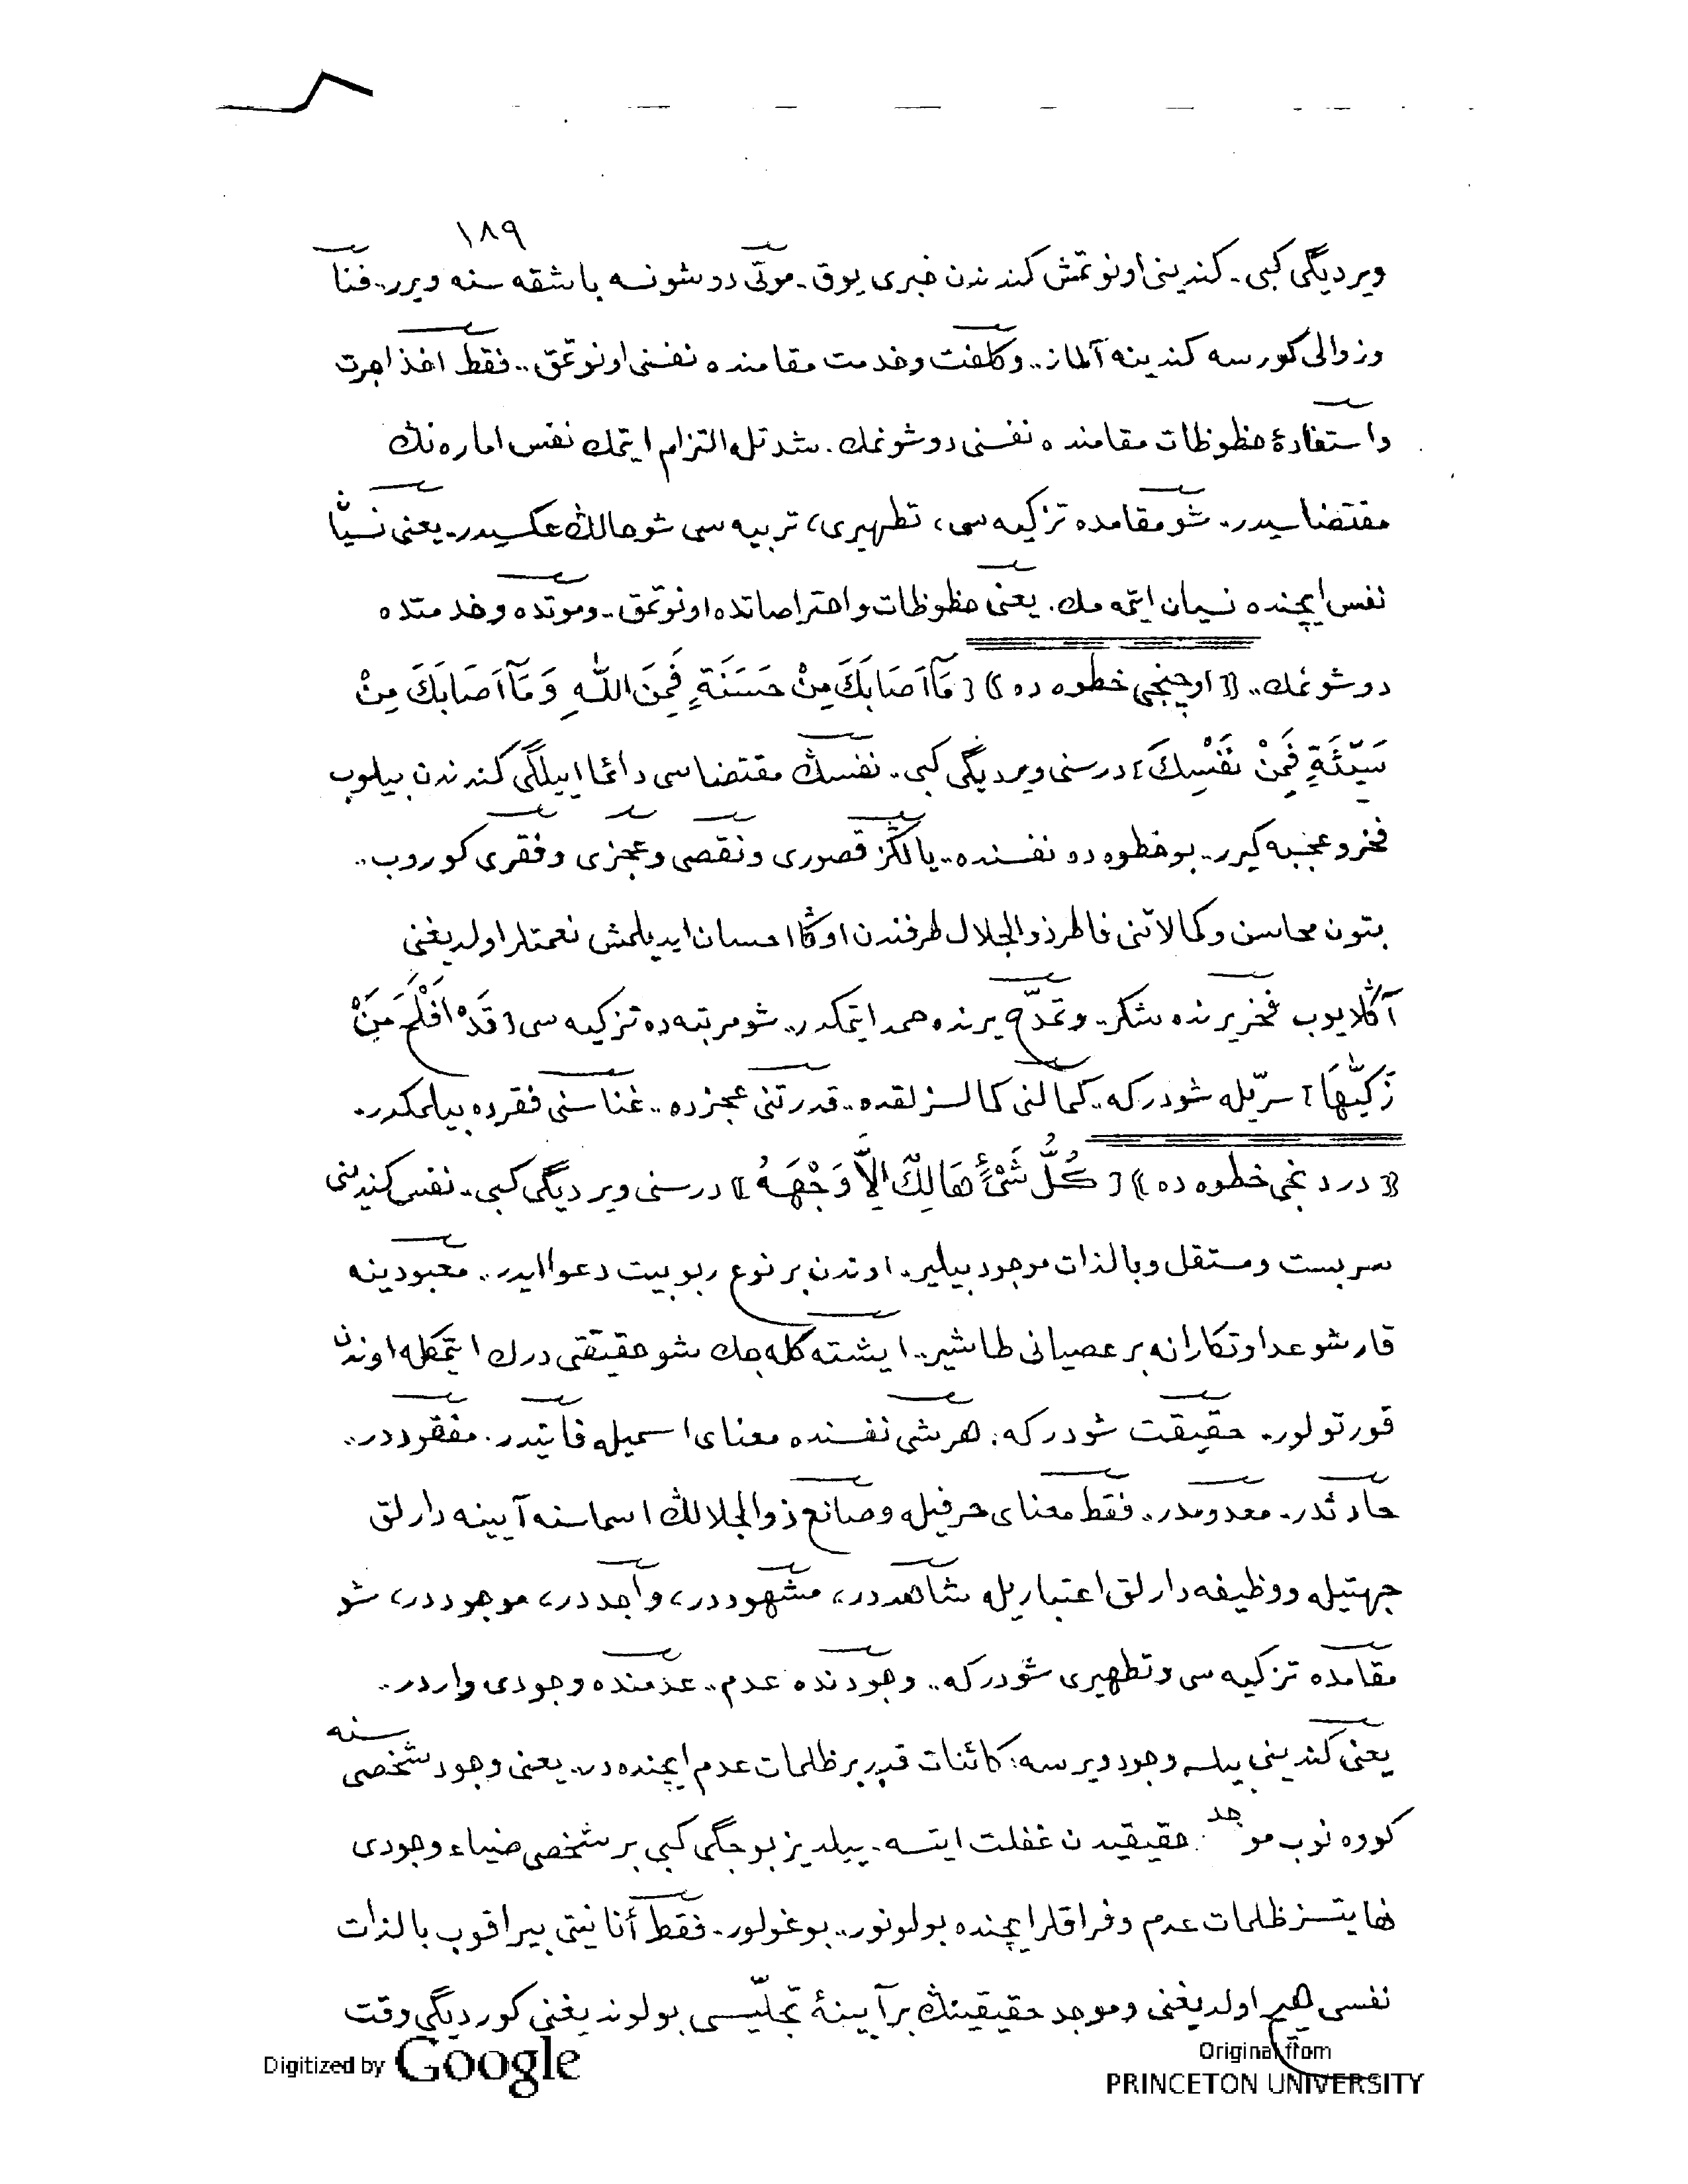 ١٨٩
ويرديگى كبى. كندينى اونوتمش كندندن خبرى يوق. موتى دوشونسه باشقه سنه ويرر.. فنا
وزوالى كورسه كندينه آلماز.. وكلفت وخدمت مقامنده نفسنى اونوتمق.. فقط اخذ اجرت
واستفادۀ حظوظات مقامنده نفسنى دوشونمك. شدتله التزام ايتمك نفس اماره نڭ
مقتضاسيدر. شو مقامده تزكيه سى، تطهيرى، تربيه سى شو حالڭ عكسيدر. يعنى نسيان
نفس ايچنده نسيان ايتمه مك. يعنى حظوظات واحتراصاتده اونوتمق.. وموتده وخدمتده
دوشونمك.. ﴿اوچنجى خطوه ده﴾ [مَٓا اَصَابَكَ مِنْ حَسَنَةٍ فَمِنَ اللّٰهِ وَمَٓا اَصَابَكَ مِنْ
سَيِّئَةٍ فَمِنْ نَفْسِكَ] درسنى ويرديگى كبى.. نفسڭ مقتضاسى دائما اييلگى كندندن بيلوب
فخر وعجبه كيرر.. بو خطوه ده نفسنده.. يالڭز قصورى ونقصى وعجزى وفقرى كوروب..
بتون محاسن وكمالاتنى فاطر ذوالجلال طرفندن اوڭا احسان ايديلمش نعمتلر اولديغنى
آڭلايوب فخر يرنده شكر.. وتمدّح يرنده حمد ايتمكدر.. شو مرتبه ده تزكيه سى [قَدْ اَفْلَحَ مَنْ
زَكّٰيهَا] سرّيله شودركه.. كمالنى كمالسزلقده.. قدرتنى عجزده.. غناسنى فقرده بيلمكدر.
﴿دردنجى خطوه ده﴾ [كُلُّ شَىْءٍ هَالِكٌ اِلاَّ وَجْهَهُ] درسنى ويرديگى كبى.. نفس كندينى
سربست ومستقل وبالذات موجود بيلير. اوندن بر نوع ربوبيت دعوا ايدر.. معبودينه
قارشو عداوتكارانه بر عصيانى طاشير.. ايشته كله جك شو حقيقتى درك ايتمكله اوندن
قورتولور. حقيقت شودركه: هر شى نفسنده معناى اسميله فانيدر. مفقوددر..
حادثدر. معدومدر.. فقط معناى حرفيله وصانع ذوالجلالڭ اسماسنه آيينه دارلق
جهتيله ووظيفه دارلق اعتباريله شاهددر، مشهوددر، واجددر، موجوددر، شو
مقامده تزكيه سى وتطهيرى شودركه.. وجودنده عدم.. عدمنده وجودى واردر..
يعنى كندينى بيلسه وجود ويرسه: كائنات قدر بر ظلمات عدم ايچنده در. يعنى وجود شخصى سنه
كوره نوب موجد حقيقيدن غفلت ايتسه. ييلديز بوجگى كبى بر شخصى ضياء وجودى
نهايتسز ظلمات عدم وفراقلر ايچنده بولونور.. بوغولور. فقط أنانيتى بيراقوب بالذات
نفسى هيچ اولديغنى وموجد حقيقينڭ بر آيينۀ تجلّيسى بولونديغنى كورديگى وقت
Digitized by Google
Original from
PRINCETON UNIVERSITY